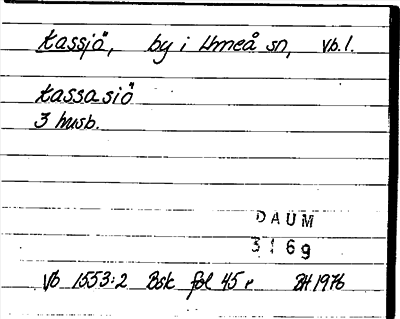 Kassjö, by i Umeå sn, Vb.l.
Kassasiö
3 husb.
DAUM
3169
Vb 1553:2 Bsk fol 45 r BH 1976